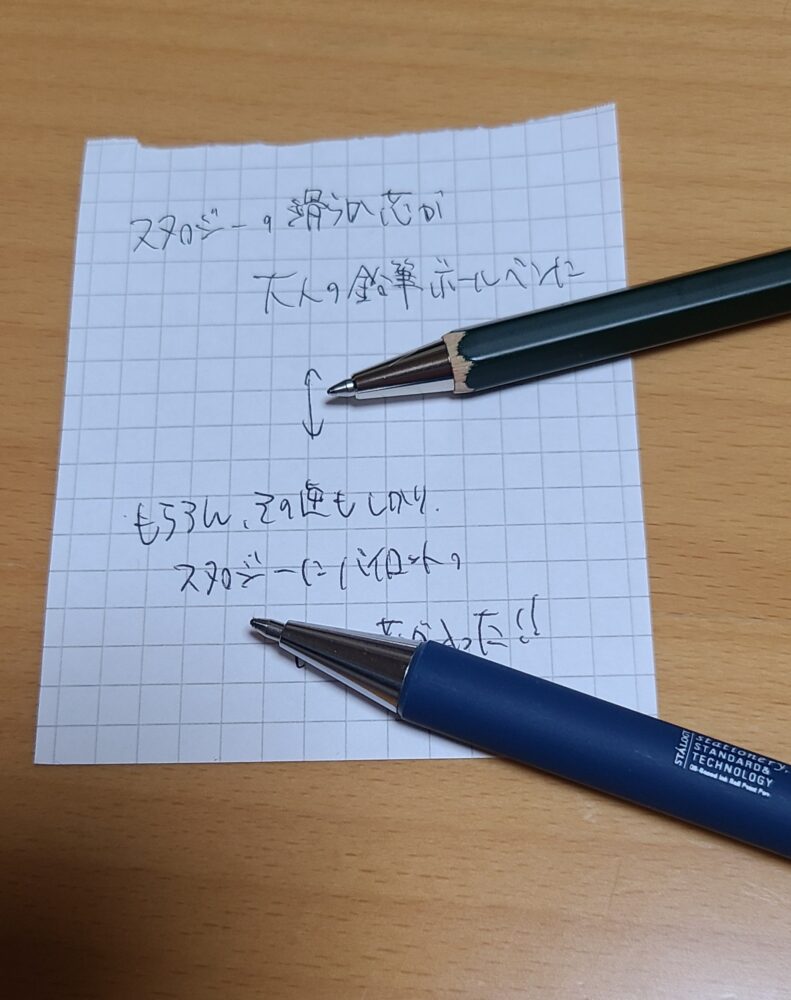 スタロジーの滑らか芯が
大人の鉛筆ボールペンに
もちろん、その逆もしかり.
スタロジーにパイロットの
芯が入った!!
stationery.
STANDARD&
TECHNOLOGY
Oil-Based Ink Ball Point Pen